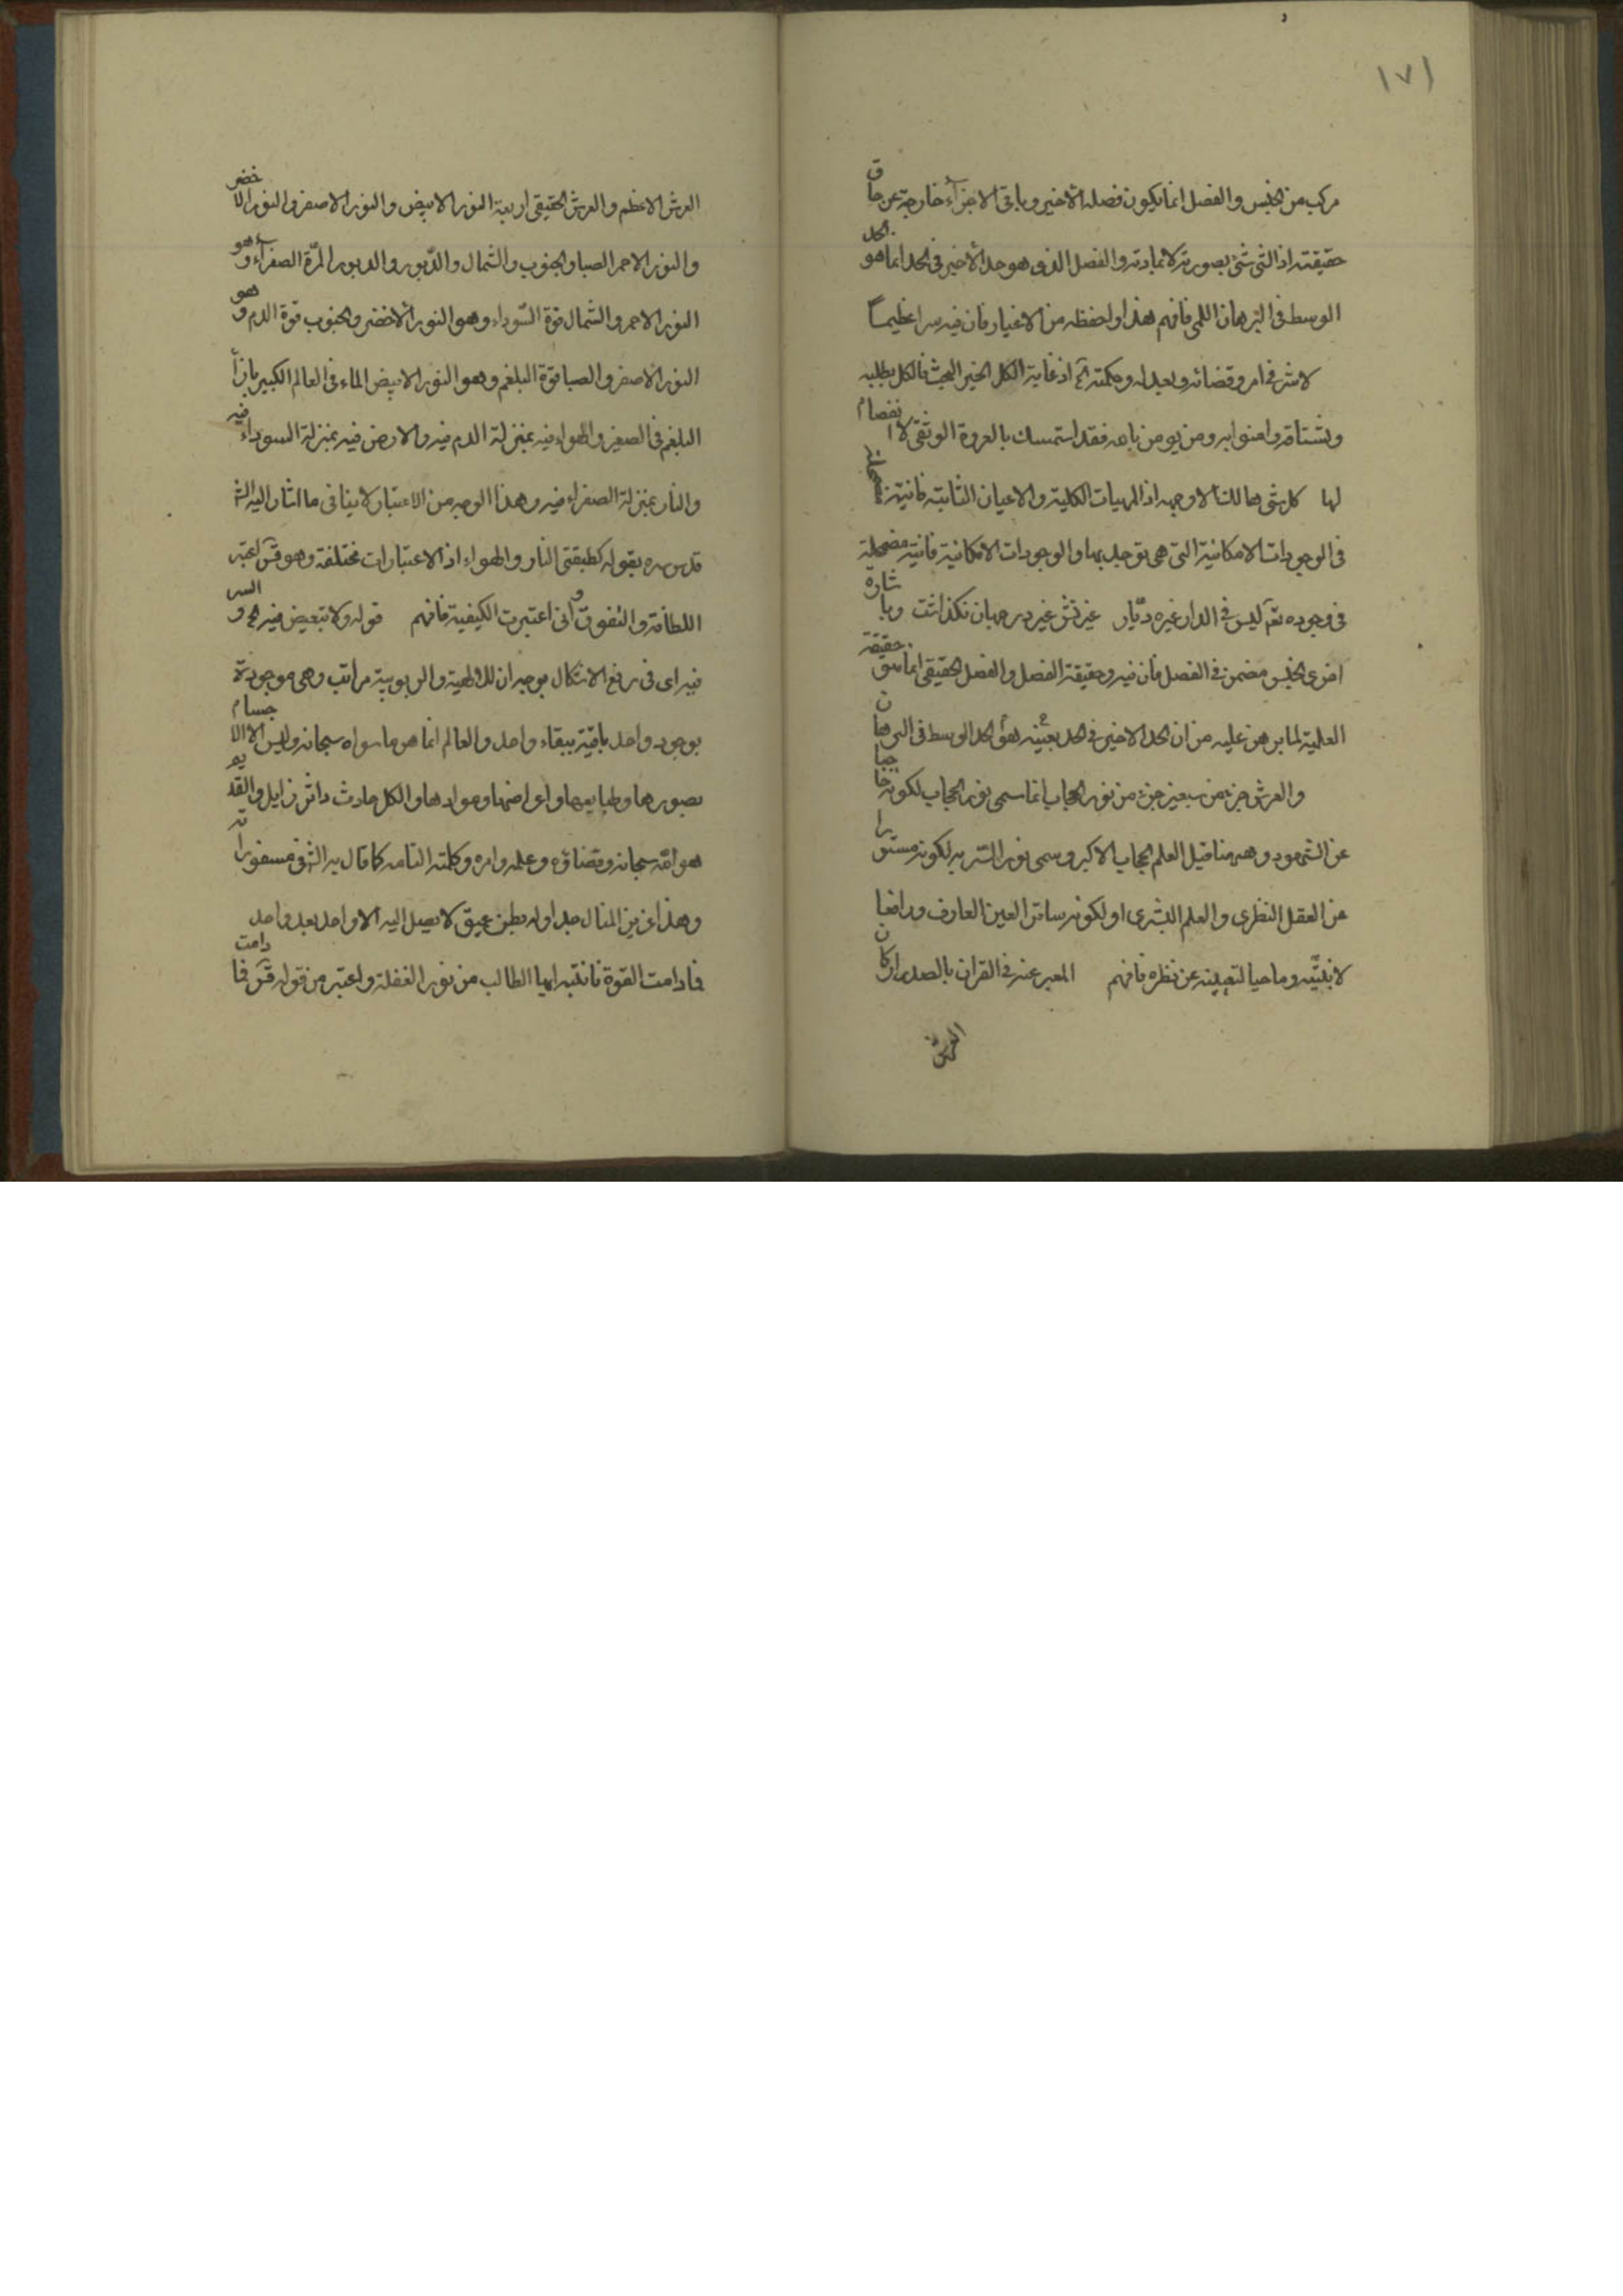 ١٧١
مركب من الجنس والفصل انما يكون فصله الأخير وباقى الاجزاء خارجة عن حاق
حقيقته اذ الشى شئ بصورته لا بمادته والفصل الذى هو حد الأخير فى الحد انما هو الحد
الوسط فى البرهان اللمى فافهم هذا واحفظه من الاغيار فان فيه سرا عظيماً
لا شر فى امره وقضائه وبعدله وحكمته اذ غاية الكل الخير البحث فالكل يطلبه
ويشتاقه وامنوا به ومن يومن بالله فقد استمسك بالعروة الوثقى لا انفصام
لها كل شئ هالك الا وجهه اذ المهيات الكلية والاعيان الثابتة فانية مضمحلة
فى الوجودات الامكانية التى هى توجد بها والوجودات الامكانية فانية مضمحلة
فى وجوده تعم ليس فى الدار غيره ديّار غيرتش غير در جهان نكذاشت وبا شارة
اخرى الجنس مضمن فى الفصل فان فيه وحقيقة الفصل والفصل الحقيقى انما هو حقيقة
العلمية لما برهن عليه من ان الحد الاخير فى الحد بعينه هو الحد الوسط فى البرهان
والعرش جزء من سبعين جزء من نور الحجاب انما سمى نور الحجاب لكونه حجابا
عن الشهود وههنا قيل العلم الحجاب الاكبر وسمى نور الستر به لكونه مستورا
عن العقل النظرى والعلم البشرى او لكونه ساتر العين العارف ورافعا
لانيّته وماحيا لتعينه عن نظره فافهم المعبر عنه فى القران بالصدر اركان
العرش
العرش الاعظم والعرش الحقيقى اربعة النور الابيض والنور الاصفر والنور الاخضر
والنور الاحمر الصبا والجنوب والشمال والدّبور والدبور المرّة الصفراء وهو
النور الاحمر والشمال قوة السّوداء وهو النور الأخضر والجنوب قوة الدم وهو
النور الاصفر والصبا قوة البلغم وهو النور الابيض الماء فى العالم الكبير بازاء
البلغم فى الصغير والهواء فيه بمنزلة الدم فيه والارض فيه بمنزلة السوداء فيه
والنار بمنزلة الصفراء فيه وهذا الوجه من الاعتبار لا ينافى ما اشار اليه الش
قدس سره بقوله كطبقتى النار والهواء اذ الاعتبارات مختلفة وهو قس اعتبر
اللطافة والتفوق وانى اعتبرت الكيفية فافهم قوله ولا تبعيض فيه ح والسر
فيه اى فى رفع الاشكال بوجه ان للالهية والربوبية مراتب وهى موجودة
بوجود واحد باقية ببقاء واحد والعالم انما هو ما سواه سبحانه وليس الا الاجسام
بصورها وطبايعها واعراضها وموادها والكل حادث داثر زايل والقديم
هو الله سبحانه وقضاؤه وعلمه وامره وكلمته التامه كما قال به الش فى مسفوراته
وهذا عزيز المنال جدا وله بطن عميق لا يصل اليه الا واحد بعد واحد
فما دامت القوة فانتبه ايها الطالب من نور الغفلة واعتبر من قوله قس فما دامت